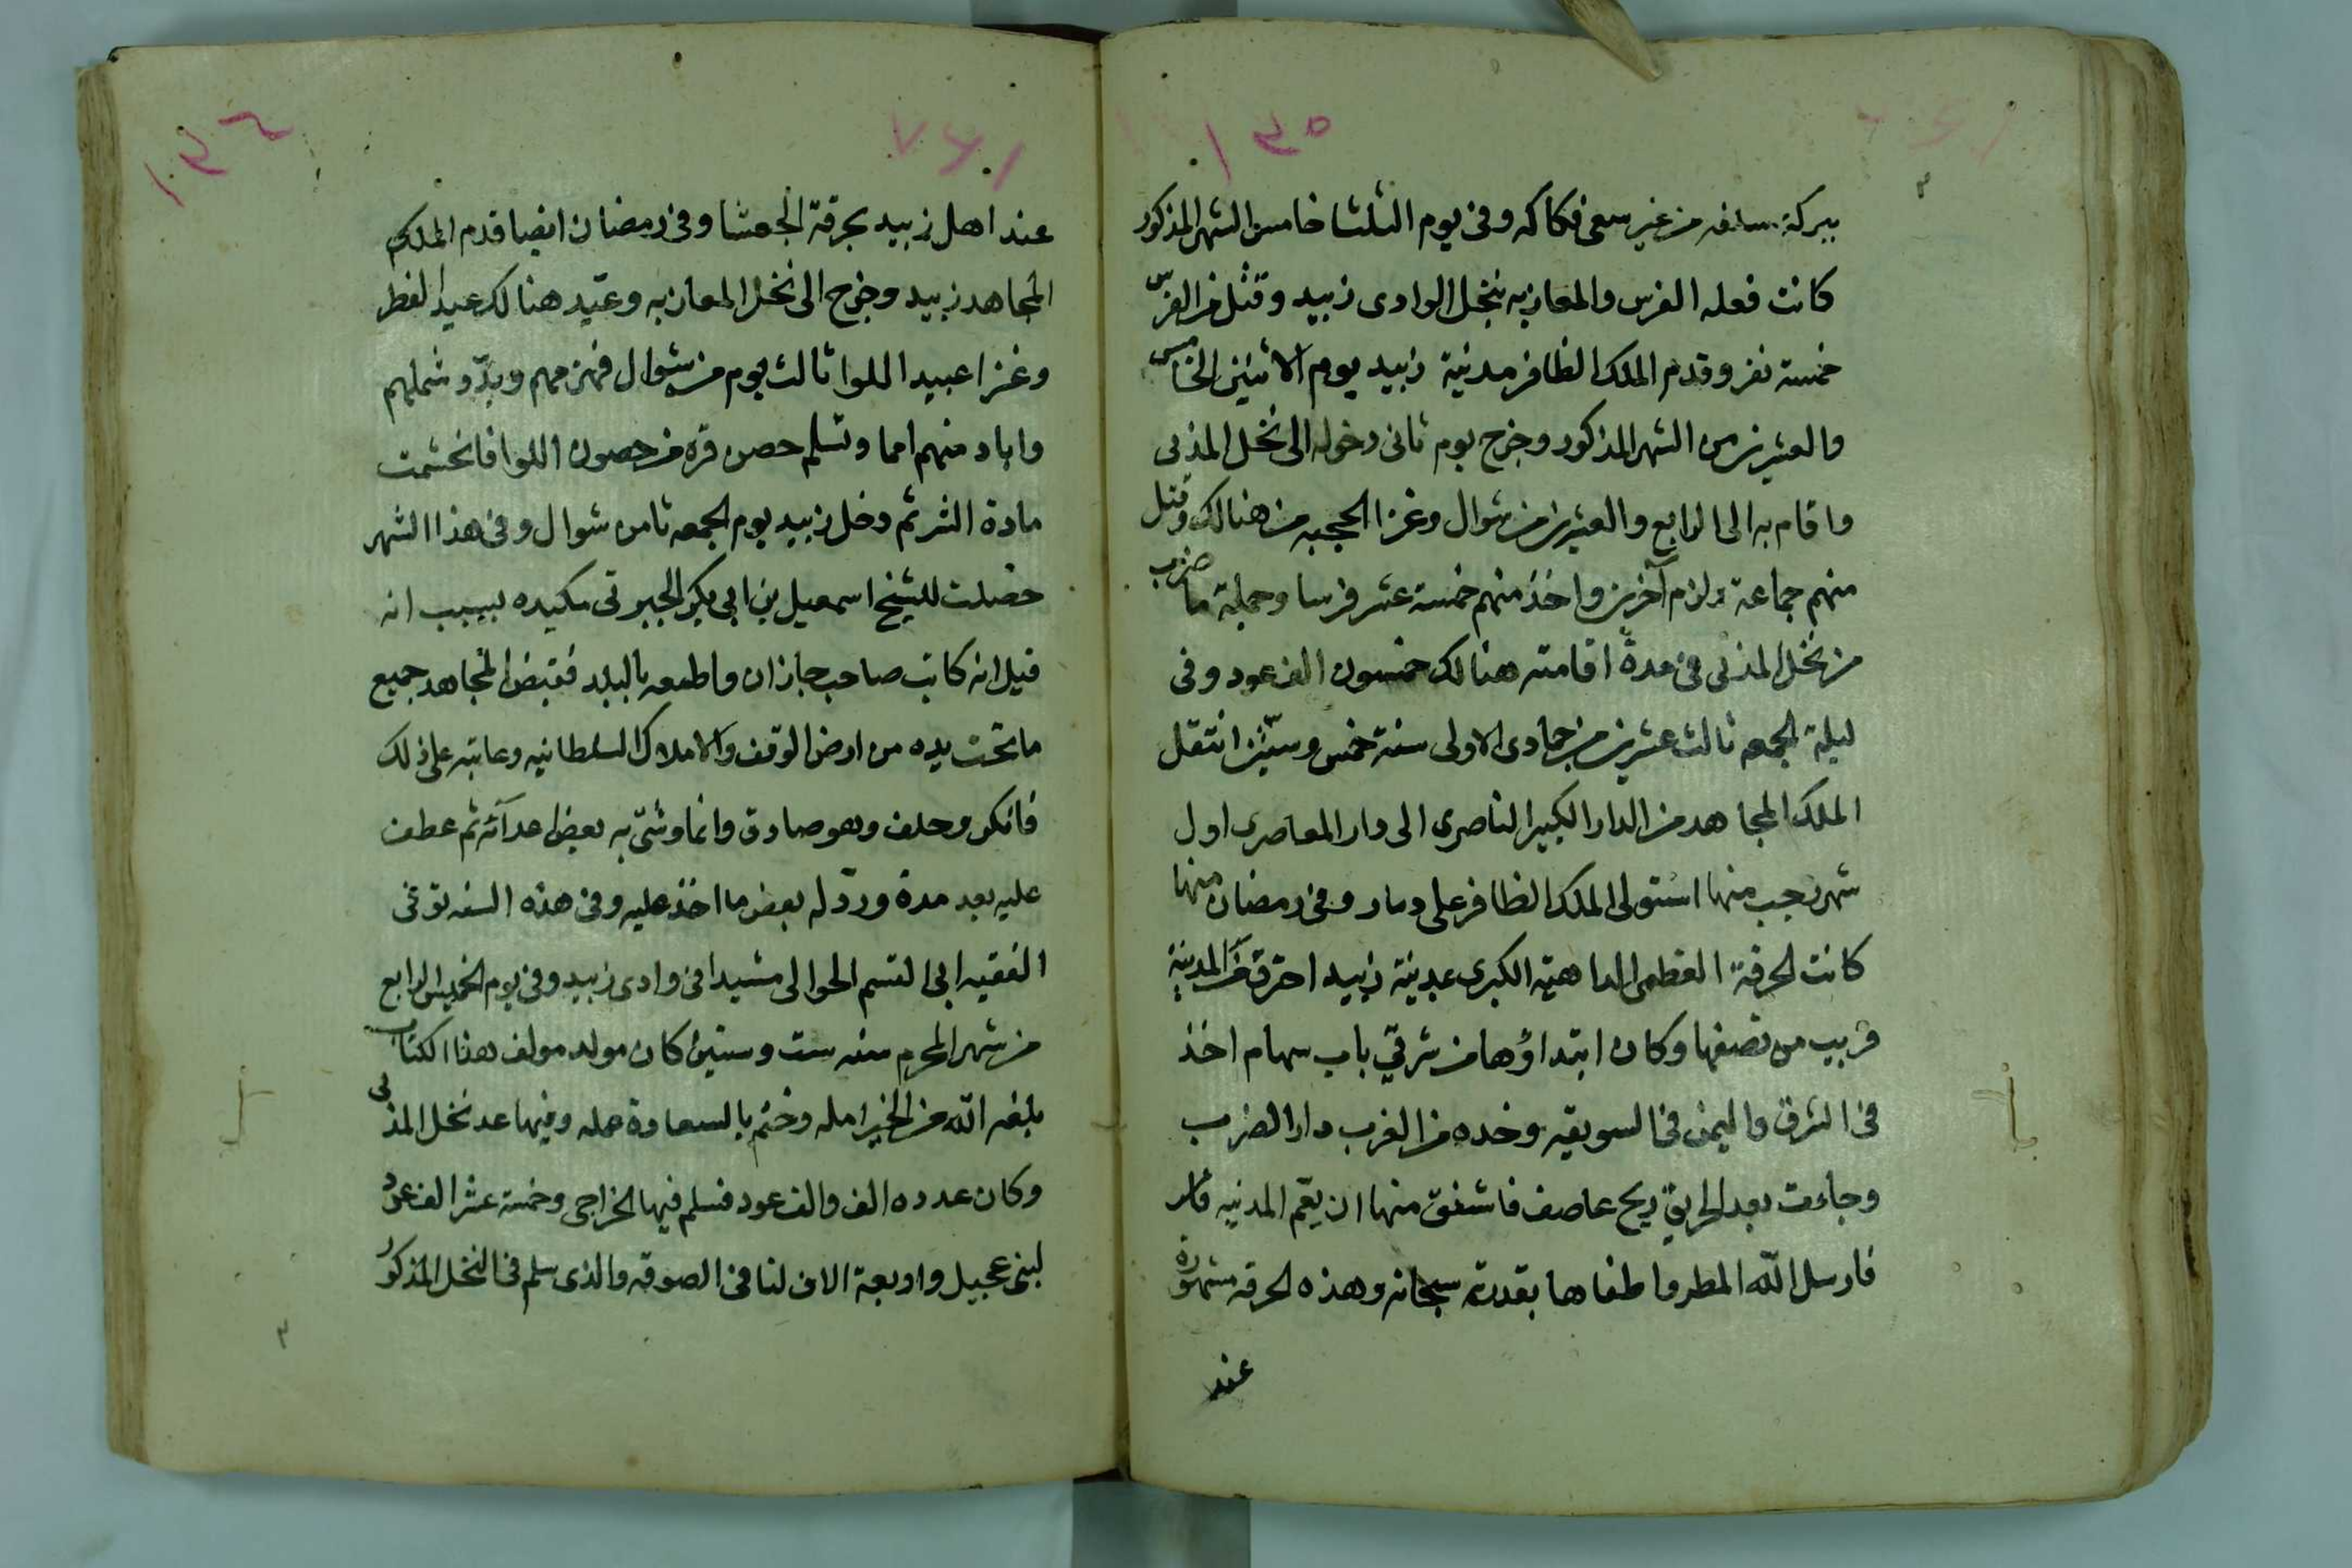 ١٣٥
ببركة سلفه من غير سعى فكاكه وفى يوم الثلثا خامس الشهر المذكور
كانت فعله الفرس والمعازبه بنخل الوادى زبيد وقتل من الفرس
خمسة نفر وقدم الملك الظافر مدينة زبيد يوم الاثنين الخامس
والعشرين من الشهر المذكور وخرج يوم ثانى دخوله الى نخل المذنى
واقام به الى الرابع والعشرين من شوال وغزا الحجبه من هنالك وقتل
منهم جماعة ولزم آخرين واخذ منهم خمسة عشر فرسا وجملة ما ضرب
من نخل المذنى فى مدة اقامته هنالك خمسون الف عود وفى
ليلة الجمعه ثالث عشرين من جمادى الاولى سنة خمس وستين انتقل
الملك المجاهد من الدار الكبير الناصرى الى دار المعاصرى اول
شهر رجب منها استولى الملك الظافر على دمار وفى رمضان منها
كانت الحرقة العظمى الداهية الكبرى بمدينة زبيد احترق من المدينة
قريب من نصفها وكان ابتداؤها من شرقى باب سهام اخذ
فى الشرق واليمن فى السويقه وخده من الغرب دار الضرب
وجاءت بعد الحريق ريح عاصف فاشفق منها ان يعم المدنيه
فارسل الله المطر واطفاها بقدرته سبحانه وهذه الحرقه مشهورة
عند
١٣٤
عند اهل زبيد بحرقة الجعشا وفى رمضان ايضا قدم الملك
المجاهد زبيد وخرج الى نخل المعازبه وعيّد هنالك عيد الفطر
وغزا عبيد اللوا ثالث يوم من شوال فهزمهم وبدّد شملهم
واباد منهم امما وتسلم حصن قره من حصون اللوا فانحسمت
مادة الشر ثم دخل زبيد يوم الجمعه ثامن شوال وفى هذا الشهر
حصلت للشيخ اسمعيل بن ابى بكر الجبرتى مكيده بسبب انه
قيل انه كاتب صاحب جازان واطمعه بالبلد فقبض المجاهد جميع
ما تحت يده من ارض الوقف والاملاك السلطانيه وعاتبه على ذلك
فانكر وحلف وهو صادق وانما وشى به بعض اعدآئه ثم عطف
عليه بعد مدة وردّ له بعض ما اخذ عليه وفى هذه السنه توفى
الفقيه ابى القسم الحوالى مشيدا فى وادى زبيد وفى يوم الخميس الرابع
من شهر المحرم سنه ست وستين كان مولد مولف هذا الكتاب
بلغه الله من الخير امله وختم بالسعادة عمله وفيها عد نخل المذنى
وكان عدده الف والف عود فسلم فيها الخراجى وخمسة عشر الف عود
لبنى عجيل واربعة الاف لنا فى الصوفه والذى سلم فى النخل المذكور